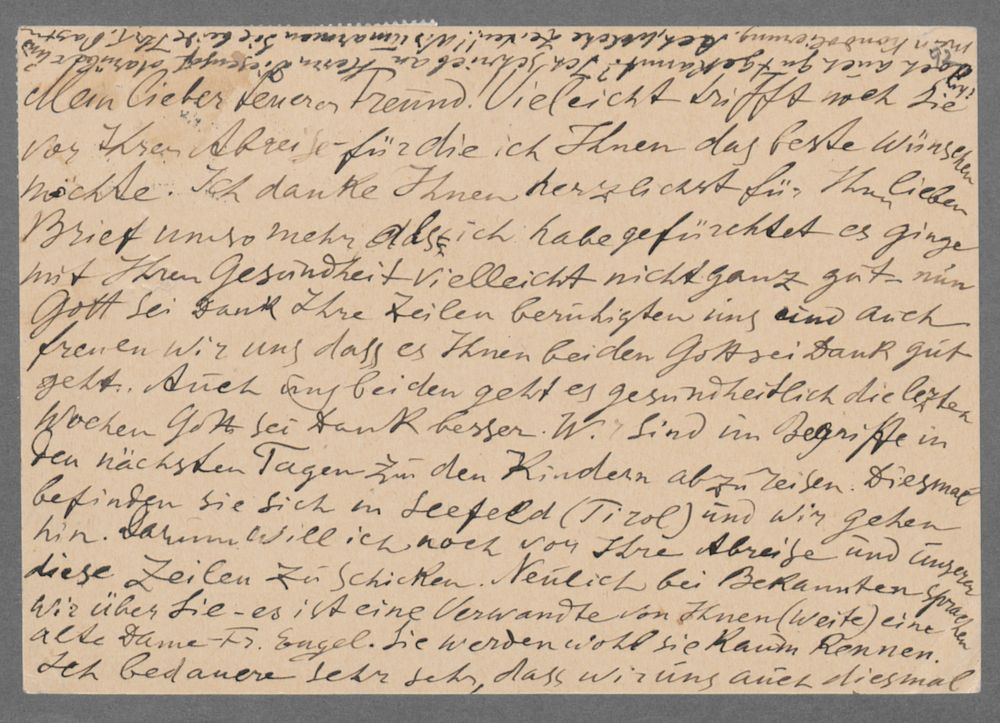 Mein lieber teurer Freund! Vielleicht trifft noch Sie
vor Ihrer Abreise für die ich Ihnen das beste wünschen
möchte. Ich danke Ihnen herzlichst für Ihren lieben
Brief umso mehr als ich habe gefürchtet es ginge
mit Ihrer Gesundheit vielleicht nicht ganz gut – nun
Gott sei Dank Ihre Zeilen beruhigten uns und auch
freuen wir uns dass es Ihnen beiden Gott sei Dank gut
geht. Auch uns beiden geht es gesundheitlich die lezten
Wochen Gott sei Dank besser. Wir sind im Begriffe in
den nächsten Tagen zu den Kindern abzureisen. Diesmal
befinden sie sich in Seefeld (Tirol) und wir gehen
hin. Darum will ich noch vor Ihre Abreise und unserer
diese Zeilen zu schicken. Neulich bei Bekannten sprachen
wir über Sie – es ist eine Verwandte von Ihnen (weite) eine
alte Dame – Fr. Engel. Sie werden wohl sie kaum kennen.
Ich bedauere sehr sehr, dass wir uns auch diesmal
auch gut gekannt? Ich schrieb an Herrn darüber und
mein Kondolierung. Ach, welche Zeiten!! Wir umarmen Sie beide Ihr